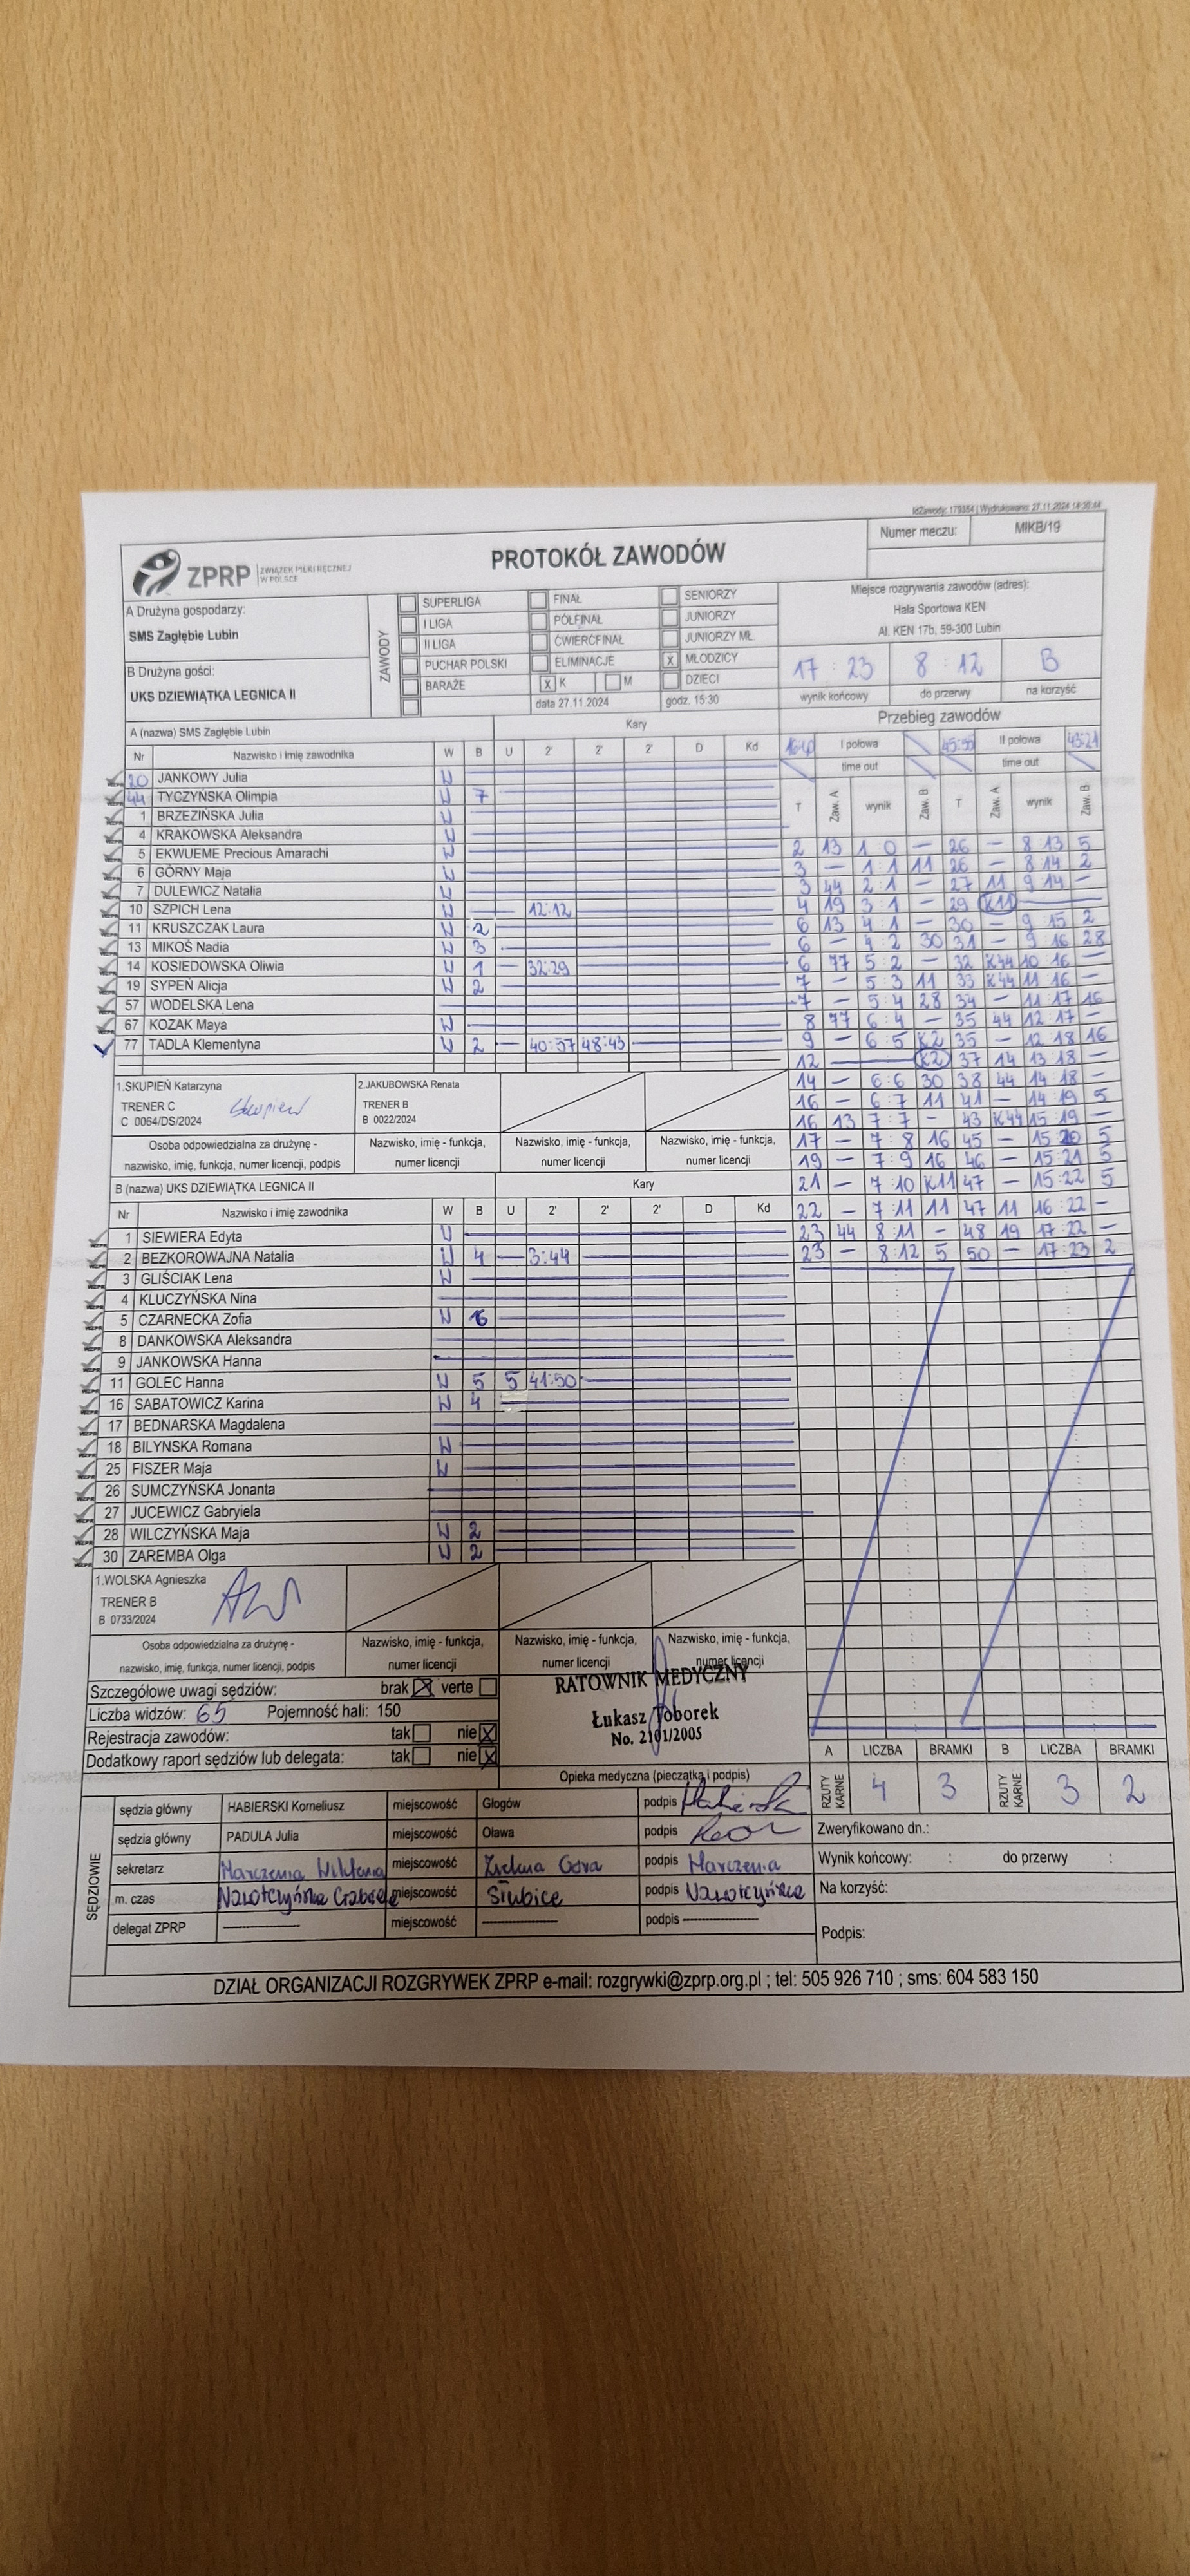 IdZawody: 179364 | Wydrukowano: 27.11.2024 14:20:44
ZPRP ZWIĄZEK PIŁKI RĘCZNEJ W POLSCE
PROTOKÓŁ ZAWODÓW
Numer meczu: MIKB/19
A Drużyna gospodarzy:
SMS Zagłębie Lubin
B Drużyna gości:
UKS DZIEWIĄTKA LEGNICA II
ZAWODY
SUPERLIGA FINAŁ SENIORZY
I LIGA PÓŁFINAŁ JUNIORZY
II LIGA ĆWIERĆFINAŁ JUNIORZY MŁ.
PUCHAR POLSKI ELIMINACJE X MŁODZICY
BARAŻE X K M DZIECI
data 27.11.2024 godz. 15:30
Miejsce rozgrywania zawodów (adres):
Hala Sportowa KEN
Al. KEN 17b, 59-300 Lubin
17 : 23 8 : 12 B
wynik końcowy do przerwy na korzyść
A (nazwa) SMS Zagłębie Lubin Kary
Nr Nazwisko i imię zawodnika W B U 2' 2' 2' D Kd
20 JANKOWY Julia W
44 TYCZYŃSKA Olimpia W 7
1 BRZEZIŃSKA Julia W
4 KRAKOWSKA Aleksandra W
5 EKWUEME Precious Amarachi W
6 GÓRNY Maja W
7 DULEWICZ Natalia W
10 SZPICH Lena W 12:12
11 KRUSZCZAK Laura W 2
13 MIKOŚ Nadia W 3
14 KOSIEDOWSKA Oliwia W 1 — 32:29
19 SYPEŃ Alicja W 2
57 WODELSKA Lena
67 KOZAK Maya W
77 TADLA Klementyna W 2 — 40:37 48:43
1.SKUPIEŃ Katarzyna
TRENER C Skupień
C 0064/DS/2024
2.JAKUBOWSKA Renata
TRENER B
B 0022/2024
Osoba odpowiedzialna za drużynę - Nazwisko, imię - funkcja, Nazwisko, imię - funkcja, Nazwisko, imię - funkcja,
nazwisko, imię, funkcja, numer licencji, podpis numer licencji numer licencji numer licencji
B (nazwa) UKS DZIEWIĄTKA LEGNICA II Kary
Nr Nazwisko i imię zawodnika W B U 2' 2' 2' D Kd
1 SIEWIERA Edyta W
2 BEZKOROWAJNA Natalia W 4 — 3:44
3 GLIŚCIAK Lena W
4 KLUCZYŃSKA Nina
5 CZARNECKA Zofia W 6
8 DANKOWSKA Aleksandra
9 JANKOWSKA Hanna
11 GOLEC Hanna W 5 5 41:50
16 SABATOWICZ Karina W 4
17 BEDNARSKA Magdalena
18 BILYNSKA Romana W
25 FISZER Maja W
26 SUMCZYŃSKA Jonanta
27 JUCEWICZ Gabryiela
28 WILCZYŃSKA Maja W 2
30 ZAREMBA Olga W 2
1.WOLSKA Agnieszka
TRENER B
B 0733/2024
Osoba odpowiedzialna za drużynę - Nazwisko, imię - funkcja, Nazwisko, imię - funkcja, Nazwisko, imię - funkcja,
nazwisko, imię, funkcja, numer licencji, podpis numer licencji numer licencji numer licencji
Przebieg zawodów
I połowa 45:55 II połowa 43:21
time out time out
T Zaw. A wynik Zaw. B T Zaw. A wynik Zaw. B
2 13 1 : 0 — 26 — 8 : 13 5
3 — 1 : 1 11 26 — 8 : 14 2
3 44 2 : 1 — 27 11 9 : 14 —
4 19 3 : 1 — 29 K11
6 13 4 : 1 — 30 — 9 : 15 2
6 — 4 : 2 30 31 — 9 : 16 28
6 77 5 : 2 — 32 K44 10 : 16 —
7 — 5 : 3 11 33 K44 11 : 16 —
7 — 5 : 4 28 34 — 11 : 17 16
8 77 6 : 4 — 35 44 12 : 17 —
9 — 6 : 5 K2 35 — 12 : 18 16
12 K2 37 14 13 : 18 —
14 — 6 : 6 30 38 44 14 : 18 —
16 — 6 : 7 11 41 — 14 : 19 5
16 13 7 : 7 — 43 K44 15 : 19 —
17 — 7 : 8 16 45 — 15 : 20 5
19 — 7 : 9 16 46 — 15 : 21 5
21 — 7 : 10 K11 47 — 15 : 22 5
22 — 7 : 11 11 47 11 16 : 22 —
23 44 8 : 11 — 48 19 17 : 22 —
23 — 8 : 12 5 50 — 17 : 23 2
Szczegółowe uwagi sędziów: brak X verte
Liczba widzów: 65 Pojemność hali: 150
Rejestracja zawodów: tak nie X
Dodatkowy raport sędziów lub delegata: tak nie X
RATOWNIK MEDYCZNY
Łukasz Toborek
No. 2101/2005
Opieka medyczna (pieczątka i podpis)
A LICZBA BRAMKI B LICZBA BRAMKI
RZUTY KARNE 4 3 RZUTY KARNE 3 2
SĘDZIOWIE
sędzia główny HABIERSKI Korneliusz miejscowość Głogów podpis
sędzia główny PADULA Julia miejscowość Oława podpis
sekretarz Marczenia miejscowość Zielona Góra podpis Marczenia
m. czas Nawotczyńska miejscowość Słubice podpis Nawotczyńska
delegat ZPRP miejscowość podpis
Zweryfikowano dn.:
Wynik końcowy: : do przerwy :
Na korzyść:
Podpis:
DZIAŁ ORGANIZACJI ROZGRYWEK ZPRP e-mail: rozgrywki@zprp.org.pl ; tel: 505 926 710 ; sms: 604 583 150